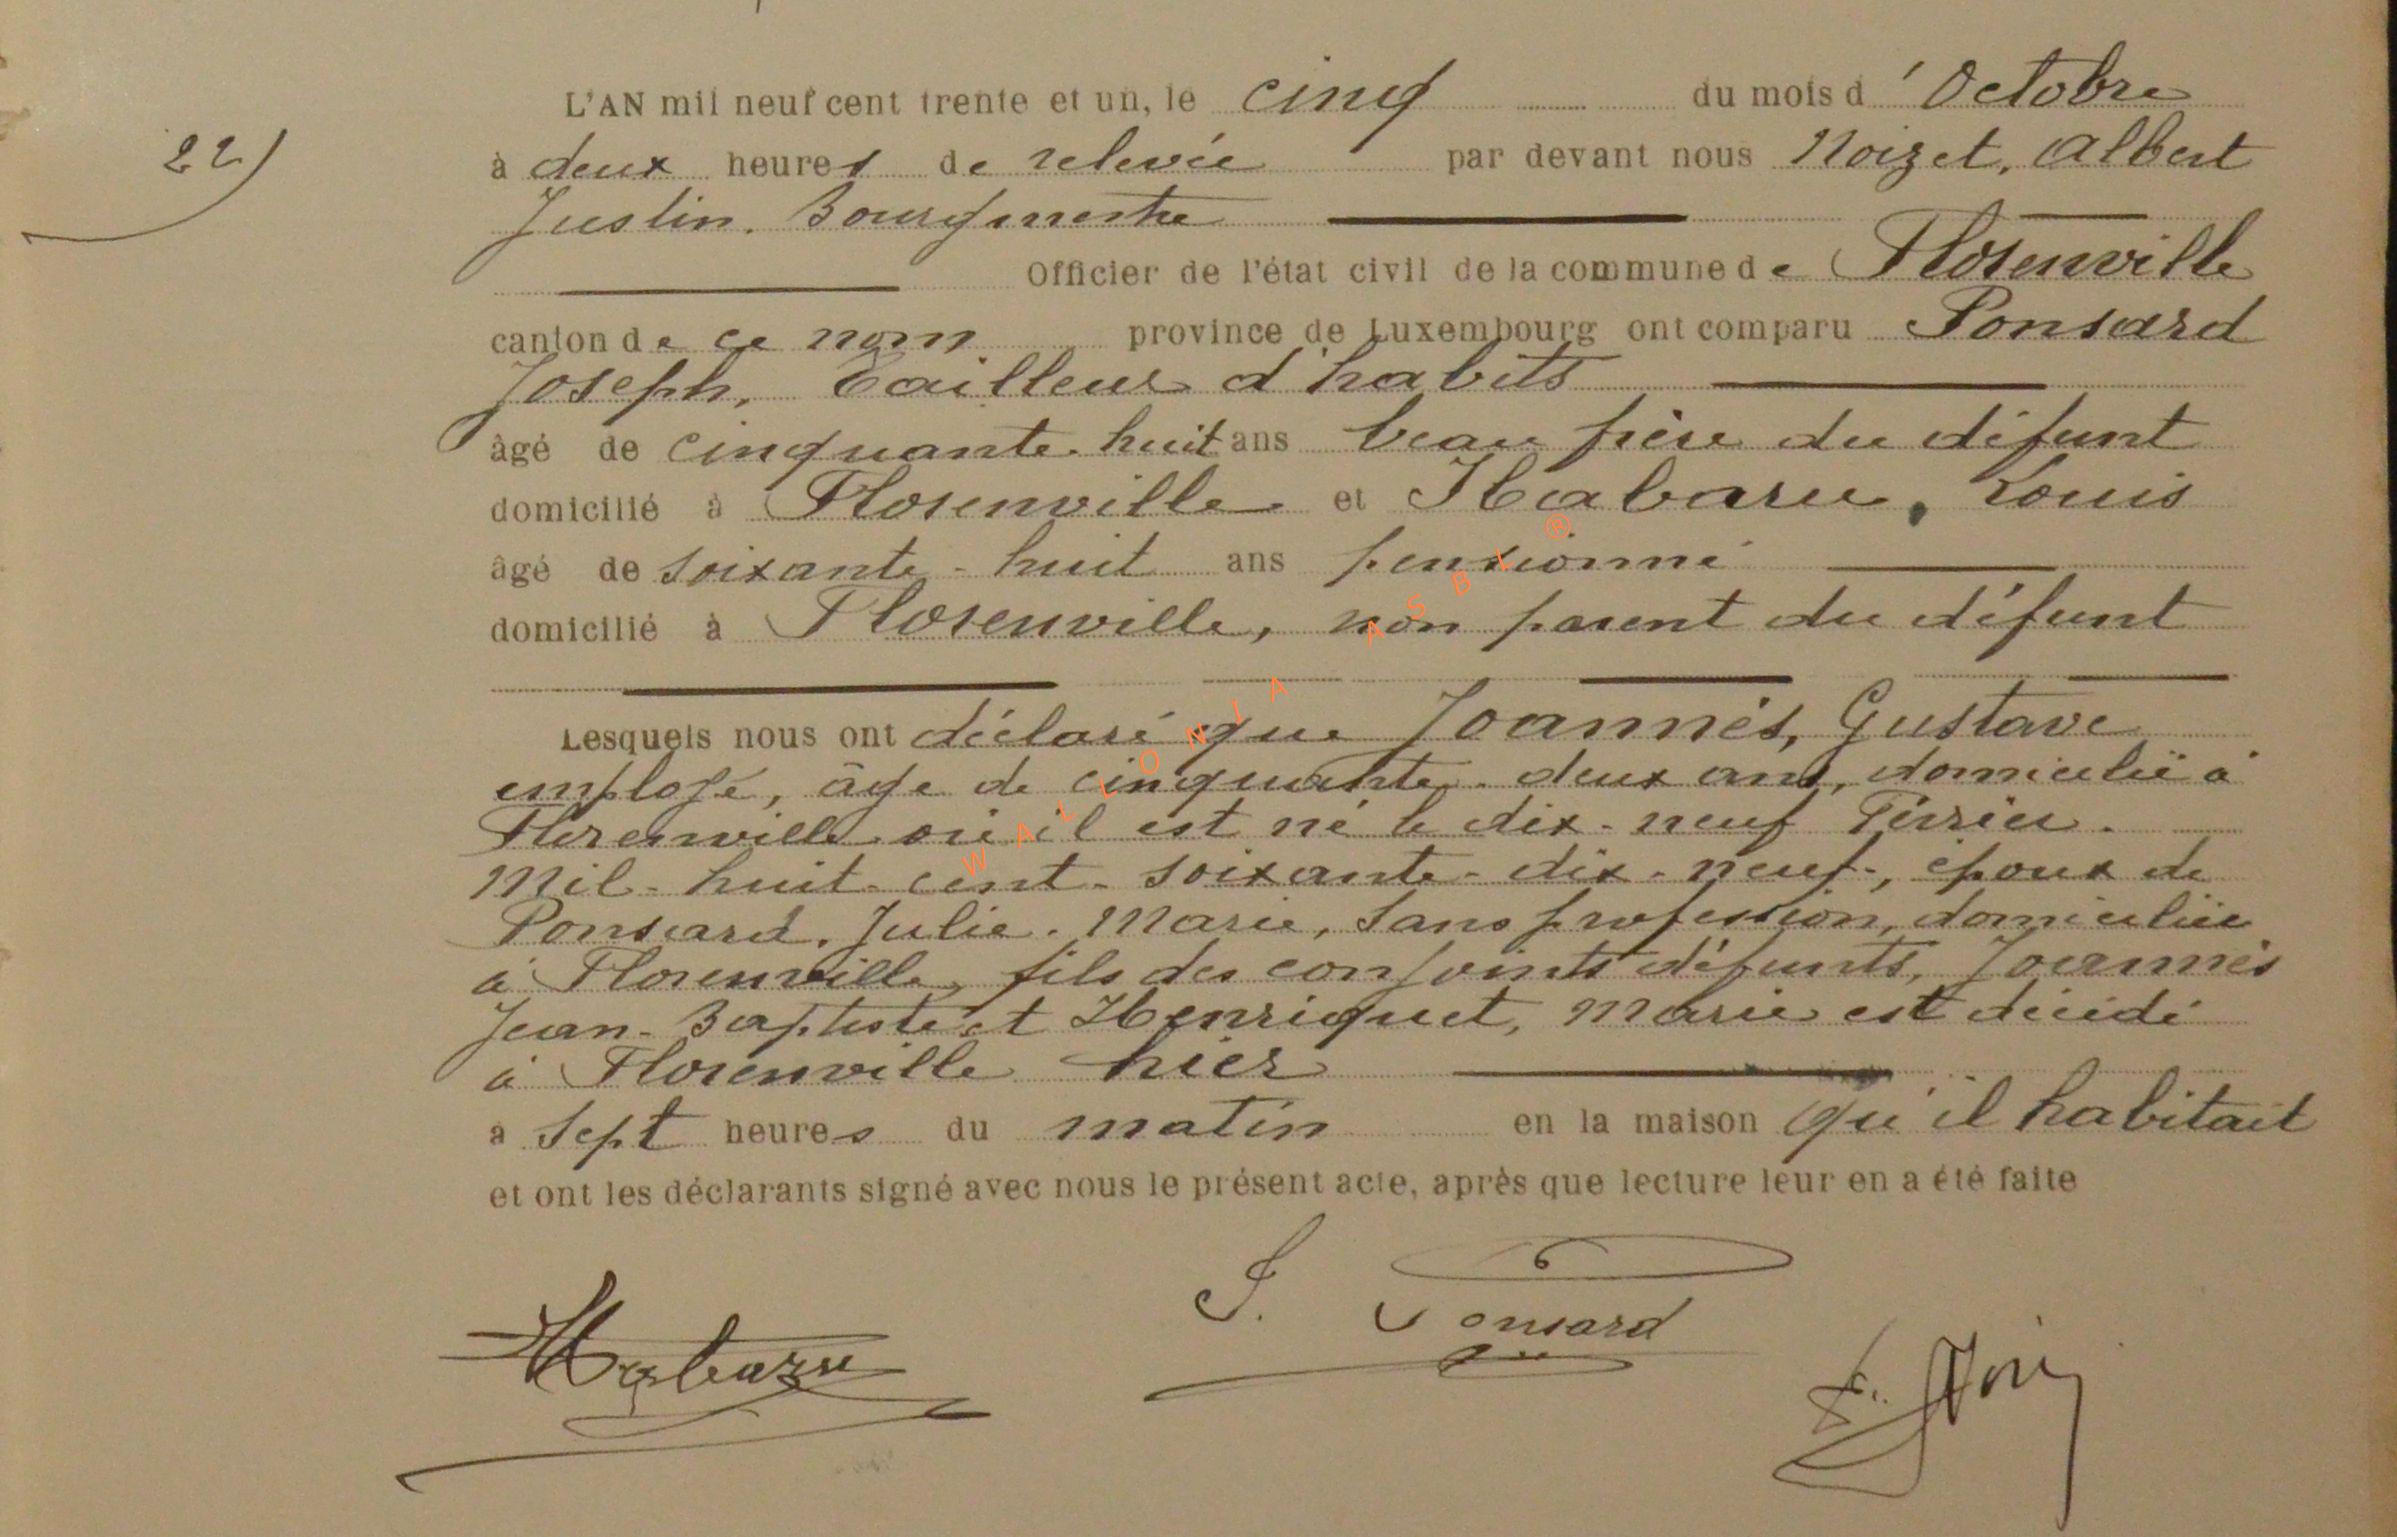 L'AN mil neuf cent trente et un, le cinq du mois d'Octobre
22)
à deux heures de relevée par devant nous Noizet, Albert
Justin. Bourgmestre
Officier de l'état civil de la commune de Florenville
canton de ce nom province de Luxembourg ont comparu Ponsard
Joseph, Tailleur d'habits
âgé de cinquante-huit ans beau frère du défunt
domicilié à Florenville et Habaru, Louis
âgé de soixante-huit ans pensionné
domicilié à Florenville, non parent du défunt
Lesquels nous ont déclaré que Joannès, Gustave
employé, âgé de cinquante-deux ans, domicilié à
Florenville où il est né le dix-neuf Février.
Mil-huit-cent-soixante-dix-neuf, époux de
Ponsard, Julie. Marie, sans profession, domiciliée
à Florenville, fils des conjoints défunts, Joannès
Jean-Baptiste et Henriquet, Marie est décédé
à Florenville hier
à sept heures du matin en la maison qu'il habitait
et ont les déclarants signé avec nous le présent acte, après que lecture leur en a été faite
J. Ponsard
Habaru
WALLONIA ASBL ®